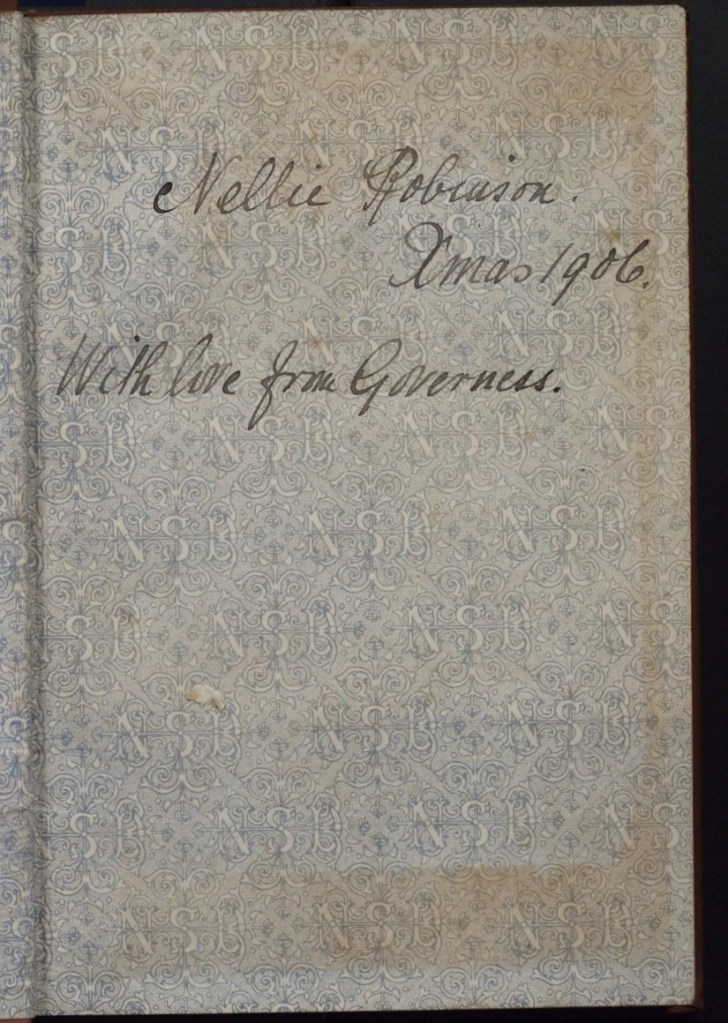 Nellie Robinson.
Xmas 1906.
With love from Governess.